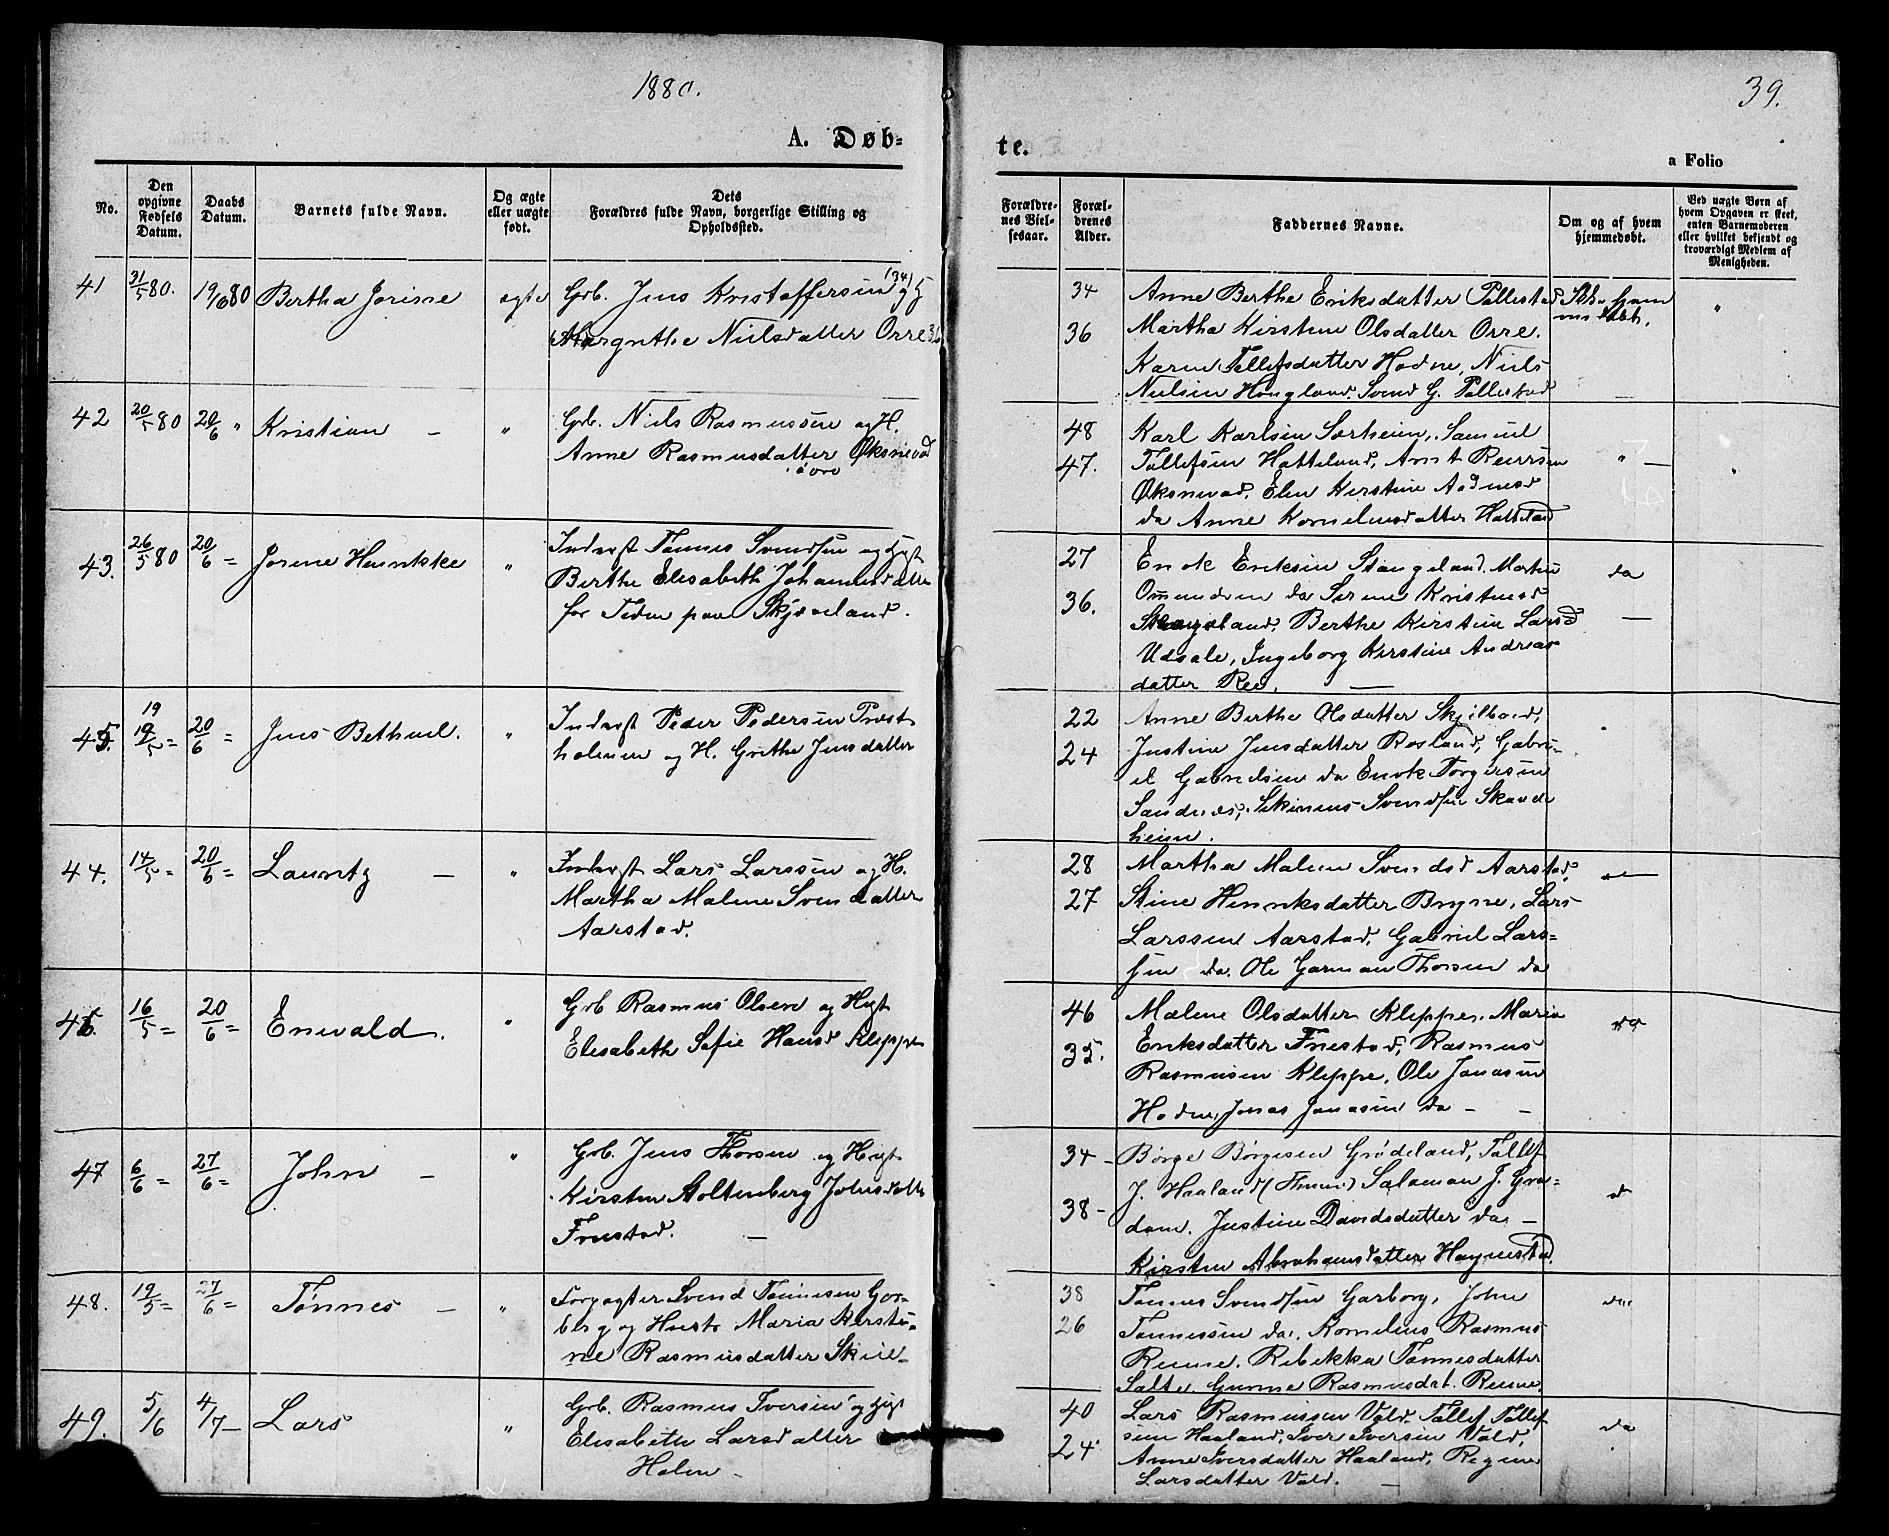 1880.
39.
A. Døb=
te.
a Folio
No.
Den opgivne Fødsels Datum.
Daabs Datum.
Barnets fulde Navn.
Og ægte eller uægte født.
Dets Forældres fulde Navn, borgerlige Stilling og Opholdssted.
Forældrenes Vielsesaar.
Forældrenes Alder.
Faddernes Navne.
Om og af hvem hjemmedøbt.
Ved uægte Børn af hvem Opgaven er skeet, enten Barnemoderen eller hvilket bekjendt og troværdigt Medlem af Menigheden.
41 31/5 80. 19/6 80 Bertha Jorine ægte Grb. Jens Kristoffersen (34) og
Margrethe Nielsdatter Orre 36
34 Anne Berthe Eriksdatter Pollestad
36 Martha Kirstine Olsdatter Orre.
Karen Tollefsdatter Hodne, Niels
Nielsen Haugland, Svend G. Pollestad
42 20/5 80 20/6 " Kristian – " Grb. Niels Rasmussen og H.
Anne Rasmusdatter Øksnevad
48 Karl Karlsen Særheim, Samuel
47. Tollefsen Hatteland, Arnt
Øksnevad, Elen Kirstine
da Anne Korneliusdatter Hatteland
43. 26/5 80 20/6 = Jorine Henrikke " Inderst Tønnes Svendsen og Hgst
Berthe Elisabeth Johannesdatter
for Tiden paa Skjæveland.
27 Enok Eriksen Stangeland, Martin
36. Omundsen da Serine Kristinesd
Stangeland, Berthe Kirstine Larsd
Udsale, Ingeborg Kirstine Andreas
datter Ree. –
45. 19/5 = 20/6 = Jens Bethuel. " Inderst Peder Pedersen Præst
holmen og H. Grethe Jensdatter
22 Anne Berthe Olsdatter
24 Justine Jensdatter Rosland, Gabri=
el Gabrielsen da Enok Torgersen
Sandnes, Sikinius Svendsen Skade
heim.
44. 14/5 = 20/6 = Lauritz – " Inderst Lars Larssen og H.
Martha Malene Svendsdatter
Aarstad.
28 Martha Malene Svendsd Aarstad,
27 Stine Henriksdatter Bryne, Lars
Larssen Aarstad, Gabriel Lars=
sen da. Ole Garman Thorsen da
46. 16/5 = 20/6 = Enevald. " Grb Rasmus Olsen og Hgst
Elisabeth Sofie Hansd Kleppe
46 Malene Olsdatter Kleppe, Maria
35. Eriksdatter Friestad, Rasmus
Rasmusen Kleppe, Ole Jonasen
Hodne, Jonas Jonasen da – –
da
47 6/6 = 27/6 = John – " Grb. Jens Thorsen og Hgst
Kirsten Stoltenberg Johnsdatter
Friestad. –
34 – Børge Børgesen Grødeland, Tollef
38 – J. Haaland ( ) Salamon J. Gru=
dam. Justine Davidsdatter da –
Kirsten Abrahamsdatter Haynestad.
48. 19/5 = 27/6 = Tønnes – " Forpagter Svend Tønnesen Gar=
borg og Hustr Maria Kirsti=
ne Rasmusdatter Skiie –
38 Tønnes Svendsen Garborg, John
26 Tønnessen da, Kornelius Rasmus
Reime. Rebekka Tønnesdatter
Salte Gunne Rasmusdat. Reime.
49. 5/6 4/7 – Lars " Grb. Rasmus Iversen og Hgst
Elisabeth Larsdatter
Holen –
40 Lars Rasmussen Vold. Tollef Tollef
24 sen Haaland, Iver Iversen Vold,
Anne Iversdatter Haaland, Regine
Larsdatter Vold. –
da